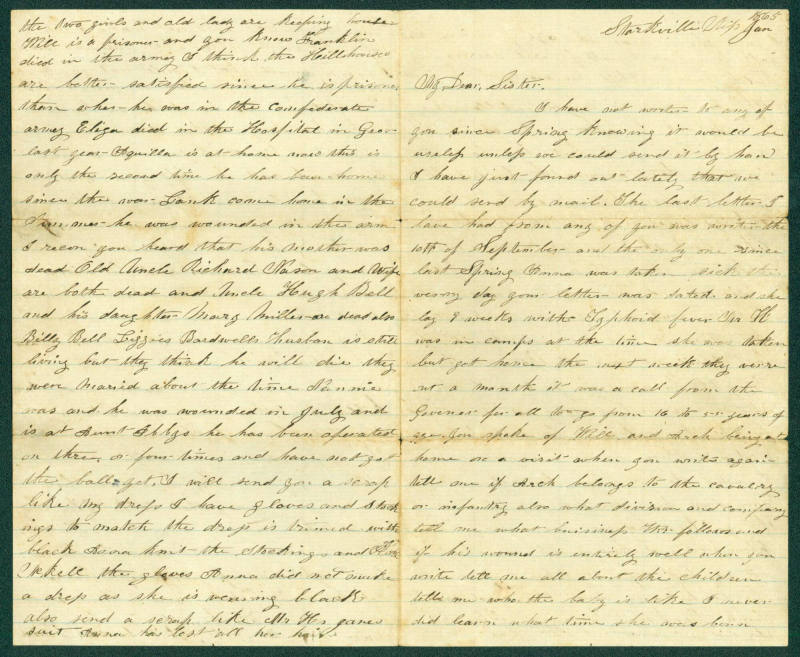 Starkville Miss Jan 1865
My Dear Sister.
I have not writen to any of
you since Spring knowing it would be
useless unless we could send it by hand
I have just found out lately that we
could send by mail. The last letter I
have had from any of you was writen the
10th of September and the only one since
last Spring Anna was taken sick the
verry day your letter was dated and she
lay 8 weeks with Typhoid fever Mr H
was in camps at the time she was taken
but got home the next week they were
out a month it was a call from the
Govenor for all to go from 16 to 55 years of
age. You spoke of Will and Arch being at
home on a visit when you write again
tell me if Arch belongs to the cavalry
or infantry also what division and company
tell me what buisiness Mr follows and
if his wound is entirely well when you
write tell me all about the children
tell me who the baby is like I never
did learn what time she was born
the two girls and old lady are keeping house
Will is a prisoner and you know Franklin
died in the army I think the Hillhouses
are better satisfied since he is prisoner
than when he was in the Confederate
army Eliza died in the Hospital in Geor
last year Aquilla is at home now this is
only the second time he has been home
since the war Lank come home in the
Summer he was wounded in the arm
I recon you heard that his Mother was
dead Old Uncle Richard Nason and Wife
are both dead and Uncle Hugh Bell
and his daughter Mary Miller are dead also
Billy Bell Lizzies Bardwells husban is still
living but they think he will die they
were Maried about the time Nannie
was and he was wounded in July and
is at Aunt he has been operated
on three or four times and have not got
the ball yet. I will send you a scrap
like my dress I have gloves and Stock
ings to match the dress is trimed with
black Anna knit the Stockings and
the gloves Anna did not make
a dress as she is wearing black
also send a scrap like Mr Hs janes
suit Anna has lost all her hair